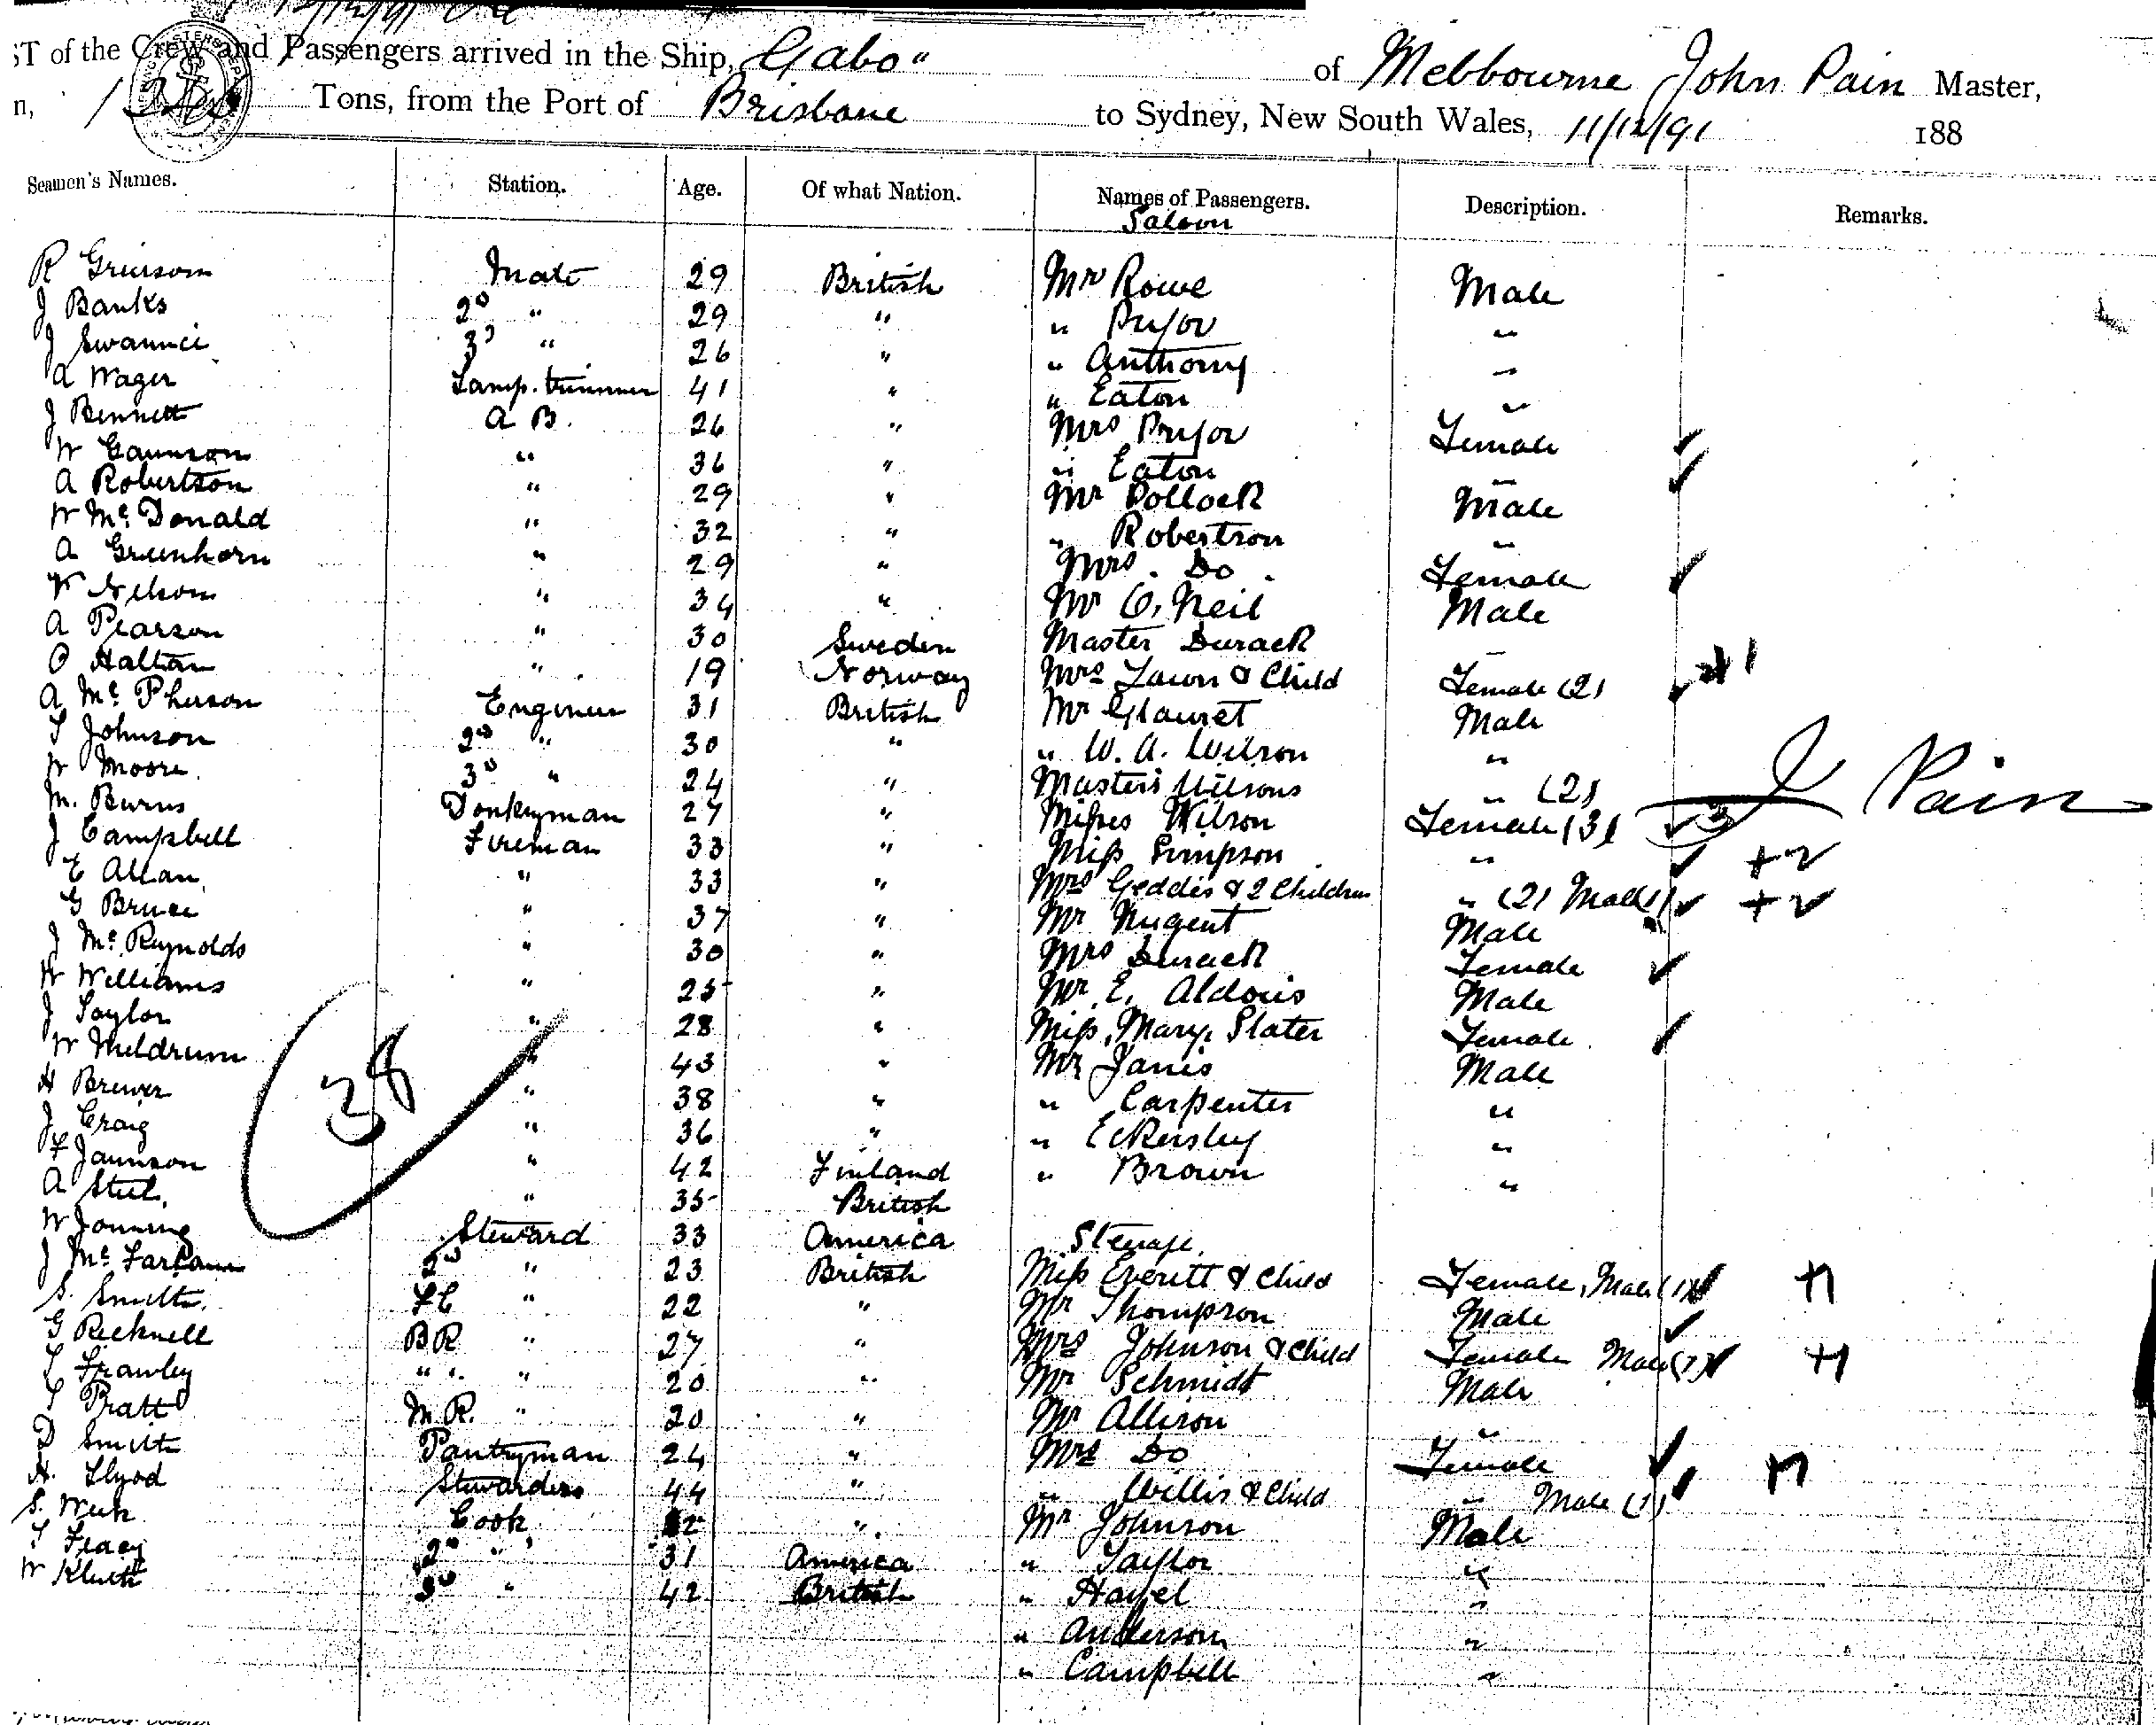 ST of the Crew and Passengers arrived in the Ship, "Gabo" of Melbourne John Pain Master,
n, Tons, from the Port of Brisbane to Sydney, New South Wales, 11/12/91 188
Seamen's Names. Station. Age. Of what Nation. Names of Passengers. Description. Remarks.
Saloon
R Grierson Mate 29 British Mr Rowe Male
J Banks 2D " 29 " " Pryor "
J 3D " 26 " " Anthony "
A Wager Lamp. trimmer 41 " " Eaton "
J Bennett A B. 26 " Mrs Pryor Female
W " 36 " " Eaton "
A Robertson " 29 " Mr Pollock Male
W McDonald " 32 " " Robertson "
A Greenhorn " 29 " Mrs. Do. Female
W Nelson " 34 " Mr O, Neil Male
A Pearson " 30 Sweden Master Durack "
O " 19 Norway Mrs Lawn & Child Female (2) 1
A McPherson Engineer 31 British Mr Male
T Johnson 2D " 30 " " W. A. Wilson "
W Moore. 3D " 24 " Masters Wilsons " (2) J Pain
M. Burns Donkeyman 27 " Misses Wilson Female (3) 3
J Campbell Fireman 33 " Miss Simpson " + 2
E Allan " 33 " Mrs Geddis & 2 Children " (2) Male (1) + 2
G Bruce " 37 " Mr Nugent Male
J McReynolds " 30 " Mrs Durack Female
W Williams " 25 " Mr E. Aldous Male
J Taylor " 28 " Miss, Mary, Slater Female
W Meldrum " 43 " Mr Janis Male
38
H Brewer " 38 " " Carpenter "
J Craig " 36 " " Eckersley "
F " 42 Finland " Brown "
A Steel. " 35 British
W Steward 33 America Steerage.
J McFarlane 2D " 23 British Miss Everitt & Child Female, Male (1) +1
S. Smith. FC " 22 " Mr Thompson Male
G Bicknell BR " 27 " Mrs Johnson & Child Female Male (1) +1
Frawley " " " 20 " Mr Schmidt Male
Pratt M.R. " 20 " Mr Allison "
D Smith Pantryman 24 " Mrs Do Female
H. Llyod Stewardess 44 " " Willis & Child " Male (1)
S. Cook " Mr Johnson Male
T 2D " 31 America " Taylor "
W 3D " 42 British " Hayel "
" Anderson "
" Campbell "